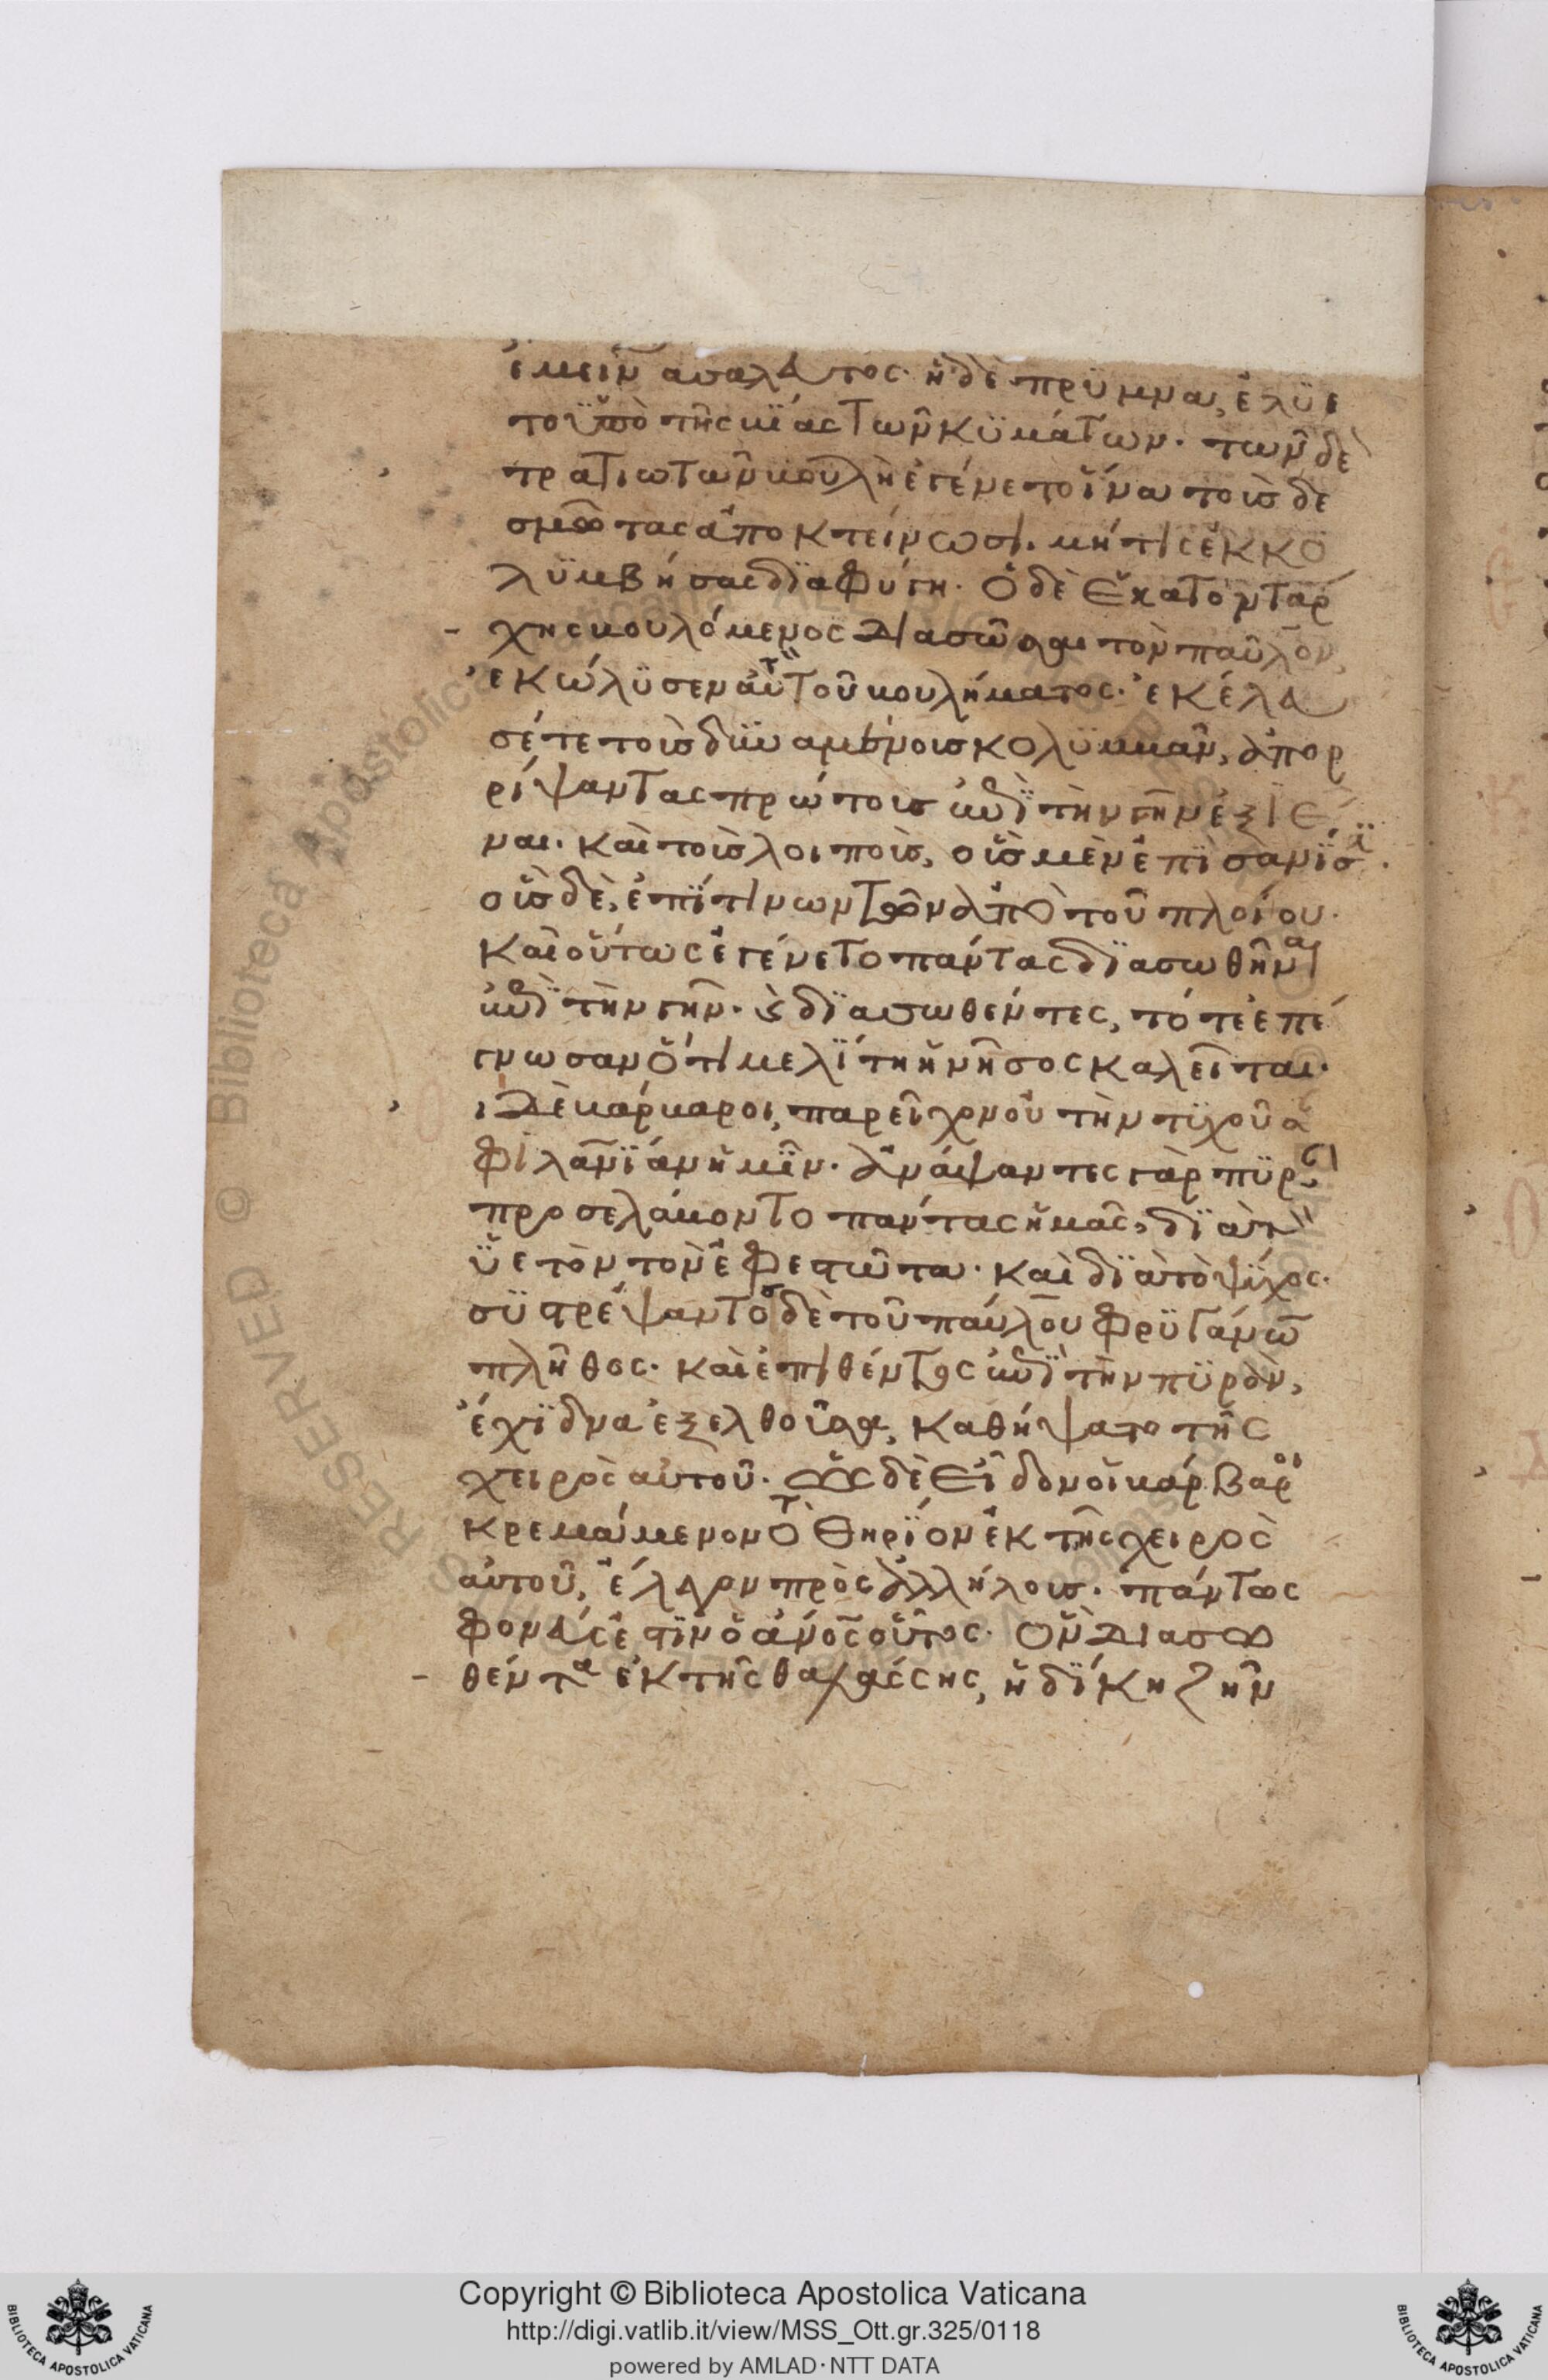 ἔμεινεν ἀσάλευτος· ἡ δὲ πρύμνα, ἐλύε
το ὑπὸ τῆς βίας τῶν κυμάτων. τῶν δὲ
τρατιωτῶν βουλὴ ἐγένετο ἵνα τοὺς δε
σμώτας ἀποκτείνωσι. μή τις ἐκκο
λυμβήσας διαφύγη. Ὁ δὲ ἑκατόνταρ
χης βουλόμενος διασῶσαι τὸν παῦλον,
ἐκώλυσεν αὐτοὺς τοῦ βουλήματος. ἐκέλευ
σέ τε τοὺς δυναμένους κολυμβᾶν, ἀπορ
ρίψαντας πρώτους ἐπὶ τὴν γῆν ἐξιέ
ναι. καὶ τοὺς λοιποὺς, οὓς μὲν ἐπὶ σανίσι.
οὓς δὲ, ἐπί τινων τῶν ἀπὸ τοῦ πλοίου.
Καὶ οὕτως ἐγένετο πάντας διασωθῆναι
ἐπὶ τὴν γῆν. ϗ διασωθέντες, τότε ἐπέ
γνωσαν ὅτι μελίτη ἡ νῆσος καλεῖται.
ι δὲ βάρβαροι, παρεῖχον οὐ τὴν τυχοῦσα
φιλανίαν ἡμῖν. ἀνάψαντες γὰρ πυρὰν
προσελάβοντο πάντας ἡμᾶς, διὰ τὸν
ὑετὸν τὸν ἐφεστῶτα. καὶ διὰ τὸ ψύχος.
συστρέψαντος δὲ τοῦ παύλου φρυγάνων
πλῆθος. καὶ ἐπιθέντος ἐπὶ τὴν πυρὰν,
ἔχιδνα ἐξελθοῦσα, καθήψατο τῆς
χειρὸς αὐτοῦ. ὡς δὲ εἶδον οἱ βάρβαροι
κρεμάμενον τὸ θηρίον ἐκ τῆς χειρὸς
αὐτοῦ, ἔλεγον πρὸς ἀλλήλους. πάντως
φονεύς ἐστιν ὁ ἄνος οὗτος. ὃν διασω
θέντα ἐκ τῆς θαλάσσης, ἡ δίκη ζῆν
Copyright © Biblioteca Apostolica Vaticana
http://digi.vatlib.it/view/MSS_Ott.gr.325/0118
powered by AMLAD·NTT DATA